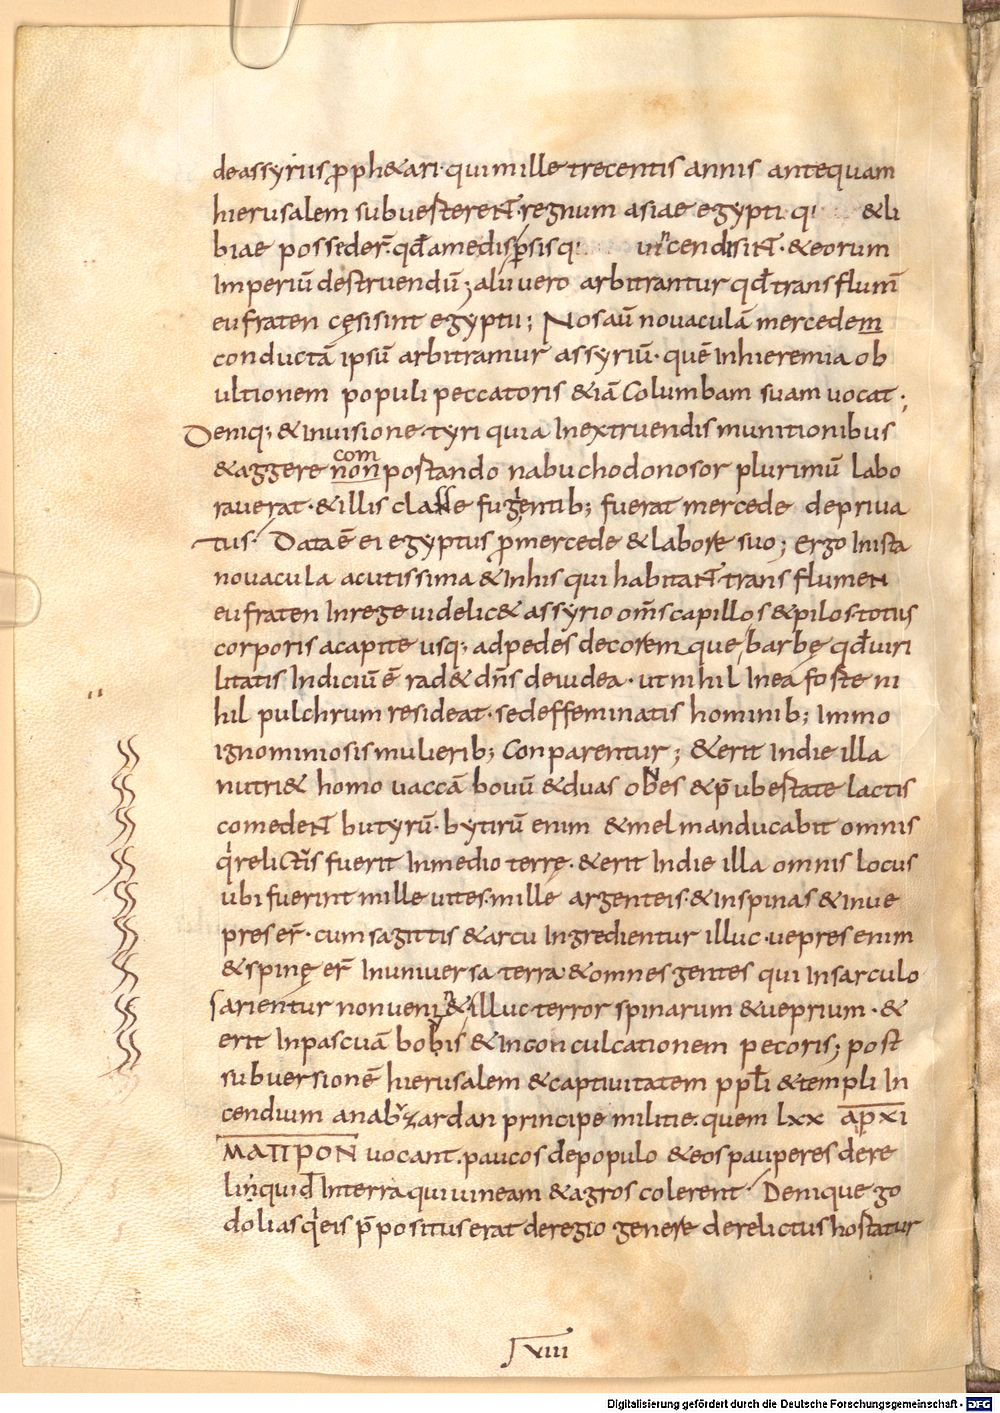 deassyriis pph&ari· quimille trecentis annis antequam
hierusalem subuesterent· regnum asiae egypti· q· &li
biae posseder̄· qđamedis ꝑsisq· uincendi sint· &eorum
Imperiū destruendū; alii uero arbitrantur qđ trans flum̄
eufraten cęsi sint egyptii; Nos aū nouaculā mercedem
conductā ipsū arbitramur assyriū· quē Inhieremia ob
ultionem populi peccatoris &iā Columbam suam uocat;
Deniq; & Inuisione tyri quia Inextruendis munitionibus
&aggere non postando nabuchodonosor plurimū labo
com
rauerat· &illis classe fugientib; fuerat mercede depriua
tus· Data ē ei egyptus ꝓmercede &labore suo; ergo Inista
nouacula acutissima &Inhis qui habitant trans flumen
eufraten Inrege uidelic& assyrio om̄s capillos &pilos totius
corporis acapite usq; adpedes decoremque barbę qđ uiri
litatis Indiciū ē rad& dn̄s deiudea· ut nihil Inea foste ni
hil pulchrum resideat· sed effeminatis hominib; Immo
ignominiosis mulierib; Conparentur; &erit Indie illa
nutri& homo uaccā bouū &duas obes &p̄ ubestate lactis
N
comedent butyrū· bytirū enim &mel manducabit omnis
qi relictus fuerit Inmedio terrę· &erit Indie illa omnis locus
ubi fuerint mille uites· mille argenteis· &Inspinas &Inue
pres er̄· cum sagittis &arcu Ingredientur illuc· uepres enim
&spinę er̄ Inuniuersa terra &omnes gentes qui Insarculo
sarientur non ueni& illuc terror spinarum &ueprium· &
erit Inpascuā bobis &Inconculcationem pecoris; post
subuersionē hierusalem &captiuitatem ppłi &templi In
cendium anabuzardan principe militie· quem lxx αρχι
ΜΑΠΡΟΝ uocant· paucos depopulo &eos pauperes dere
linquid Interra qui uineam &agros colerent· Denique go
dolias qi eis p̄positus erat deregio genere derelictus hostatur
VIII
Digitalisierung gefördert durch die Deutsche Forschungsgemeinschaft - DFG